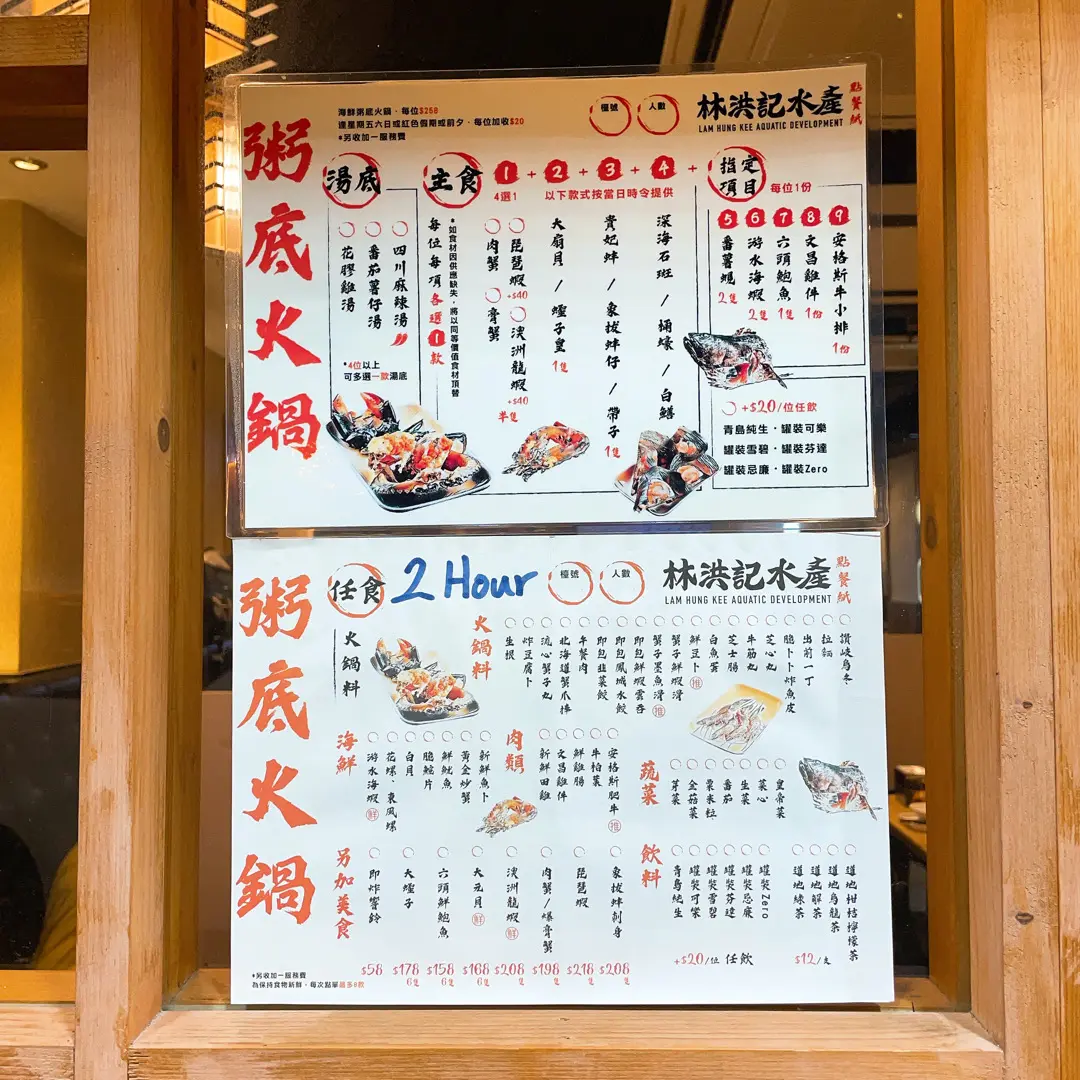 粥底火鍋
海鮮粥底火鍋，每位$268
逢星期五六日或紅色假期或前夕，每位加收$20
*另收加一服務費
檯號
人數
林洪記水產
LAM HUNG KEE AQUATIC DEVELOPMENT
點餐紙
湯底
四川麻辣湯
番茄薯仔湯
花膠雞湯
*4位以上
可多選一款湯底
主食
每位每項各選1款
*如食材因供應缺失，將以同等價值食材頂替
1 + 2 + 3 + 4 +
4選1
以下款式按當日時令提供
琵琶蝦 +$40
澳洲龍蝦 +$40 半隻
肉蟹
膏蟹
大扇貝 / 蟶子皇 1隻
貴妃蚌 / 象拔蚌仔 / 帶子 1隻
深海石斑 / 桶蠔 / 白鱔
指定項目
每位1份
5 6 7 8 9
番薯螺 2隻
游水海蝦 2隻
六頭鮑魚 1隻
文昌雞件 1份
安格斯牛小排 1份
+$20/位任飲
青島純生・罐裝可樂
罐裝雪碧・罐裝芬達
罐裝忌廉・罐裝Zero
粥底火鍋
任食
2 Hour
檯號
人數
林洪記水產
LAM HUNG KEE AQUATIC DEVELOPMENT
點餐紙
火鍋料
火鍋料
讚岐烏冬
拉麵
出前一丁
脆卜卜炸魚皮
芝心丸
牛筋丸
芝士腸
白魚蛋
鮮豆卜 推
蟹子鮮蝦滑
蟹子墨魚滑 推
即包鮮蝦雲吞
即包鳳城水餃
即包韭菜餃
午餐肉
北海道蟹爪棒
流心蟹子丸
炸豆腐卜
生根
海鮮
新鮮魚卜
黃金炒蟹
鮮魷魚
脆鯇片
白貝
花螺、東風螺
游水海蝦 鮮
肉類
安格斯肥牛 推
牛柏葉
鮮雞腸
文昌雞件
新鮮田雞
蔬菜
皇帝菜
菜心
生菜
番茄
粟米粒
金菇菜
芽菜
另加美食
即炸響鈴 $58
大蟶子 $178 6隻
六頭鮮鮑魚 $158 6隻
大元貝 鮮 $168 6隻
澳洲龍蝦 鮮 $208 隻
肉蟹/爆膏蟹 $198 隻
琵琶蝦 $218 隻
象拔蚌刺身 $208 隻
飲料
罐裝Zero
罐裝忌廉
罐裝芬達
罐裝雪碧
罐裝可樂
青島純生
+$20/位 任飲
道地柑桔檸檬茶
道地烏龍茶
道地解茶
道地綠茶
$12/支
*另收加一服務費
為保持食物新鮮，每次點單最多8款